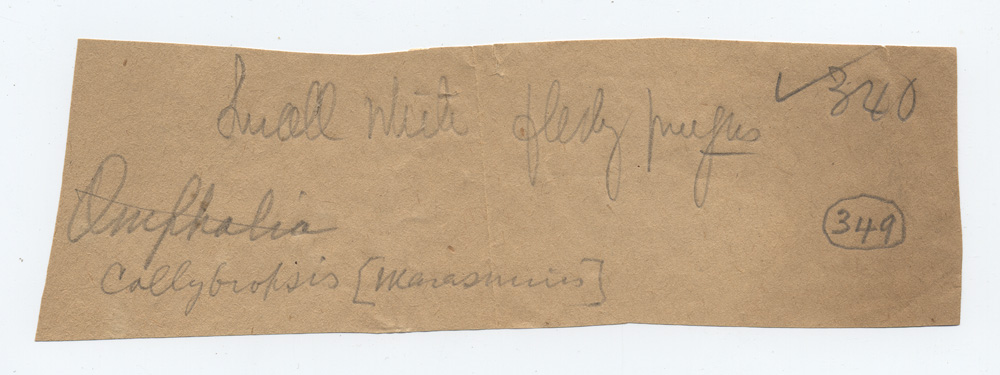 Small White fleshy fungus ✓ 340
Omphalia
349
Collybiopsis [Marasmius]